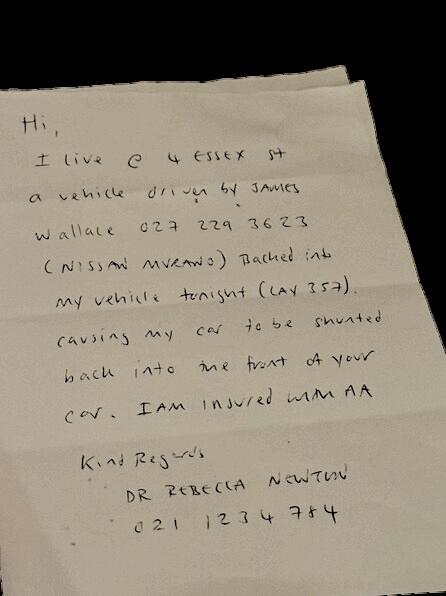 Hi,
I live @ 4 ESSEX St
a vehicle driven by JAMES
Wallace 027 229 3623
(NISSAN MURANO) Backed into
my vehicle tonight (LAY 357).
causing my car to be shunted
back into the front of your
car. I AM insured with AA
Kind Regards
DR REBECCA NEWTON
021 1234 784